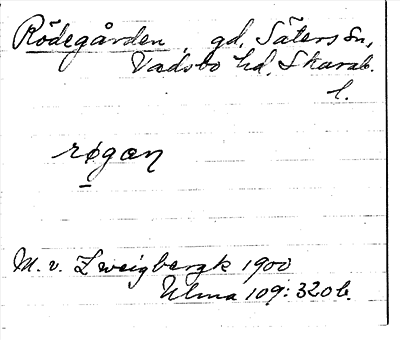 Rödegården, gd, Säters sn,
Vadsbo hd, Skarab.
l.
røgæn
M. v. Zweigbergk 1900
Ulma 109:320 b.